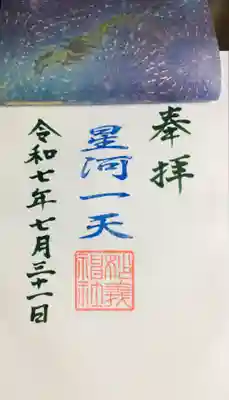 奉拝
星河一天
令和七年七月三十一日